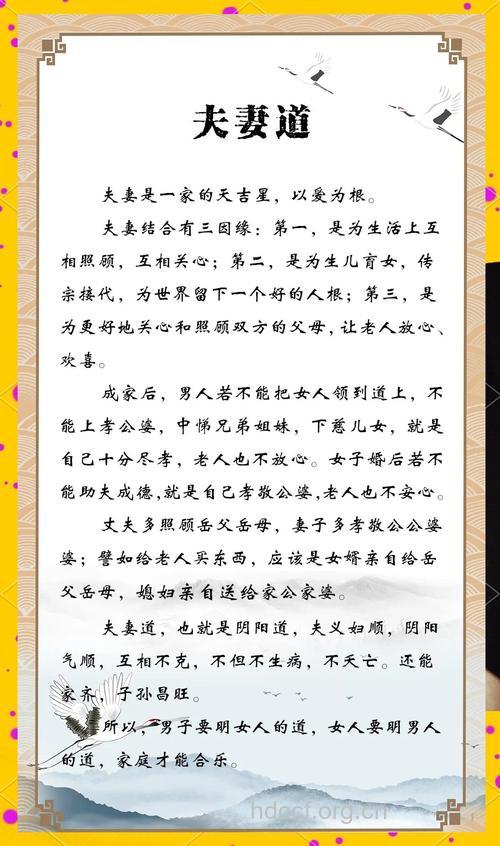 夫妻道
夫妻是一家的天吉星，以爱为根。
夫妻结合有三因缘：第一，是为生活上互
相照顾，互相关心；第二，是为生儿育女，传
宗接代，为世界留下一个好的人根；第三，是
为更好地关心和照顾双方的父母，让老人放心、
欢喜。
成家后，男人若不能把女人领到道上，不
能上孝公婆，中悌兄弟姐妹，下慈儿女，就是
自己十分尽孝，老人也不放心。女子婚后若不
能助夫成德，就是自己孝敬公婆，老人也不安心。
丈夫多照顾岳父岳母，妻子多孝敬公公婆
婆；譬如给老人买东西，应该是女婿亲自给岳
父岳母，媳妇亲自送给家公家婆。
夫妻道，也就是阴阳道，夫义妇顺，阴阳
气顺，互相不克，不但不生病，不夭亡。还能
家齐，子孙昌旺。
所以，男子要明女人的道，女人要明男人
的道，家庭才能合乐。
hdccf.org.cn